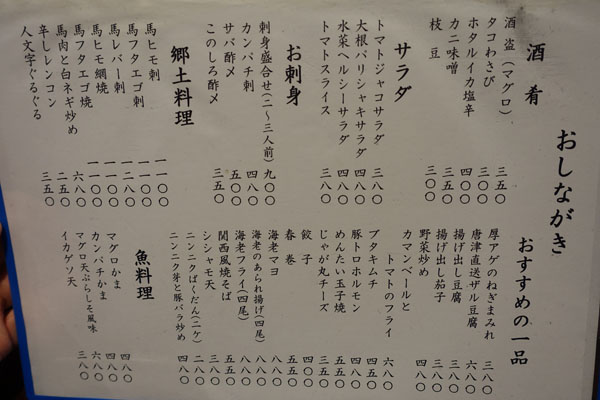 おしながき
酒肴
酒盗（マグロ） 三五〇
タコわさび 三〇〇
ホタルイカ塩辛 四〇〇
カニ味噌 三五〇
枝豆 三〇〇
サラダ
トマトジャコサラダ 三八〇
大根パリシャキサラダ 四八〇
水菜ヘルシーサラダ 四八〇
トマトスライス 三八〇
お刺身
刺身盛合せ(二〜三人前) 九〇〇
カンパチ刺 四八〇
サバ酢〆 五〇〇
このしろ酢〆 三五〇
郷土料理
馬ヒモ刺 一一〇〇
馬フタエゴ刺 一一〇〇
馬レバー刺 一二八〇
馬ヒモ網焼 一一〇〇
馬フタエゴ焼 一一〇〇
馬肉と白ネギ炒め 六八〇
辛しレンコン 二五〇
人文字ぐるぐる 三五〇
おすすめの一品
厚アゲのねぎまみれ 三八〇
唐津直送ザル豆腐 六八〇
揚げ出し豆腐 三八〇
揚げ出し茄子 三八〇
野菜炒め 四八〇
カマンベールと
トマトのフライ 六八〇
ブタキムチ 四五〇
豚トロホルモン 四八〇
めんたい玉子焼 五五〇
じゃが丸チーズ 三五〇
餃子 四〇〇
春巻 五五〇
海老マヨ 八八〇
海老のあられ揚げ(四尾) 八八〇
海老フライ(四尾) 八八〇
関西風焼そば 五五〇
シシャモ天 三八〇
ニンニクばくだん(二ケ) 二八〇
ニンニク芽と豚バラ炒め 四八〇
魚料理
マグロかま 四八〇
カンパチかま 四八〇
マグロ天ぷらしそ風味 六八〇
イカゲソ天 三八〇